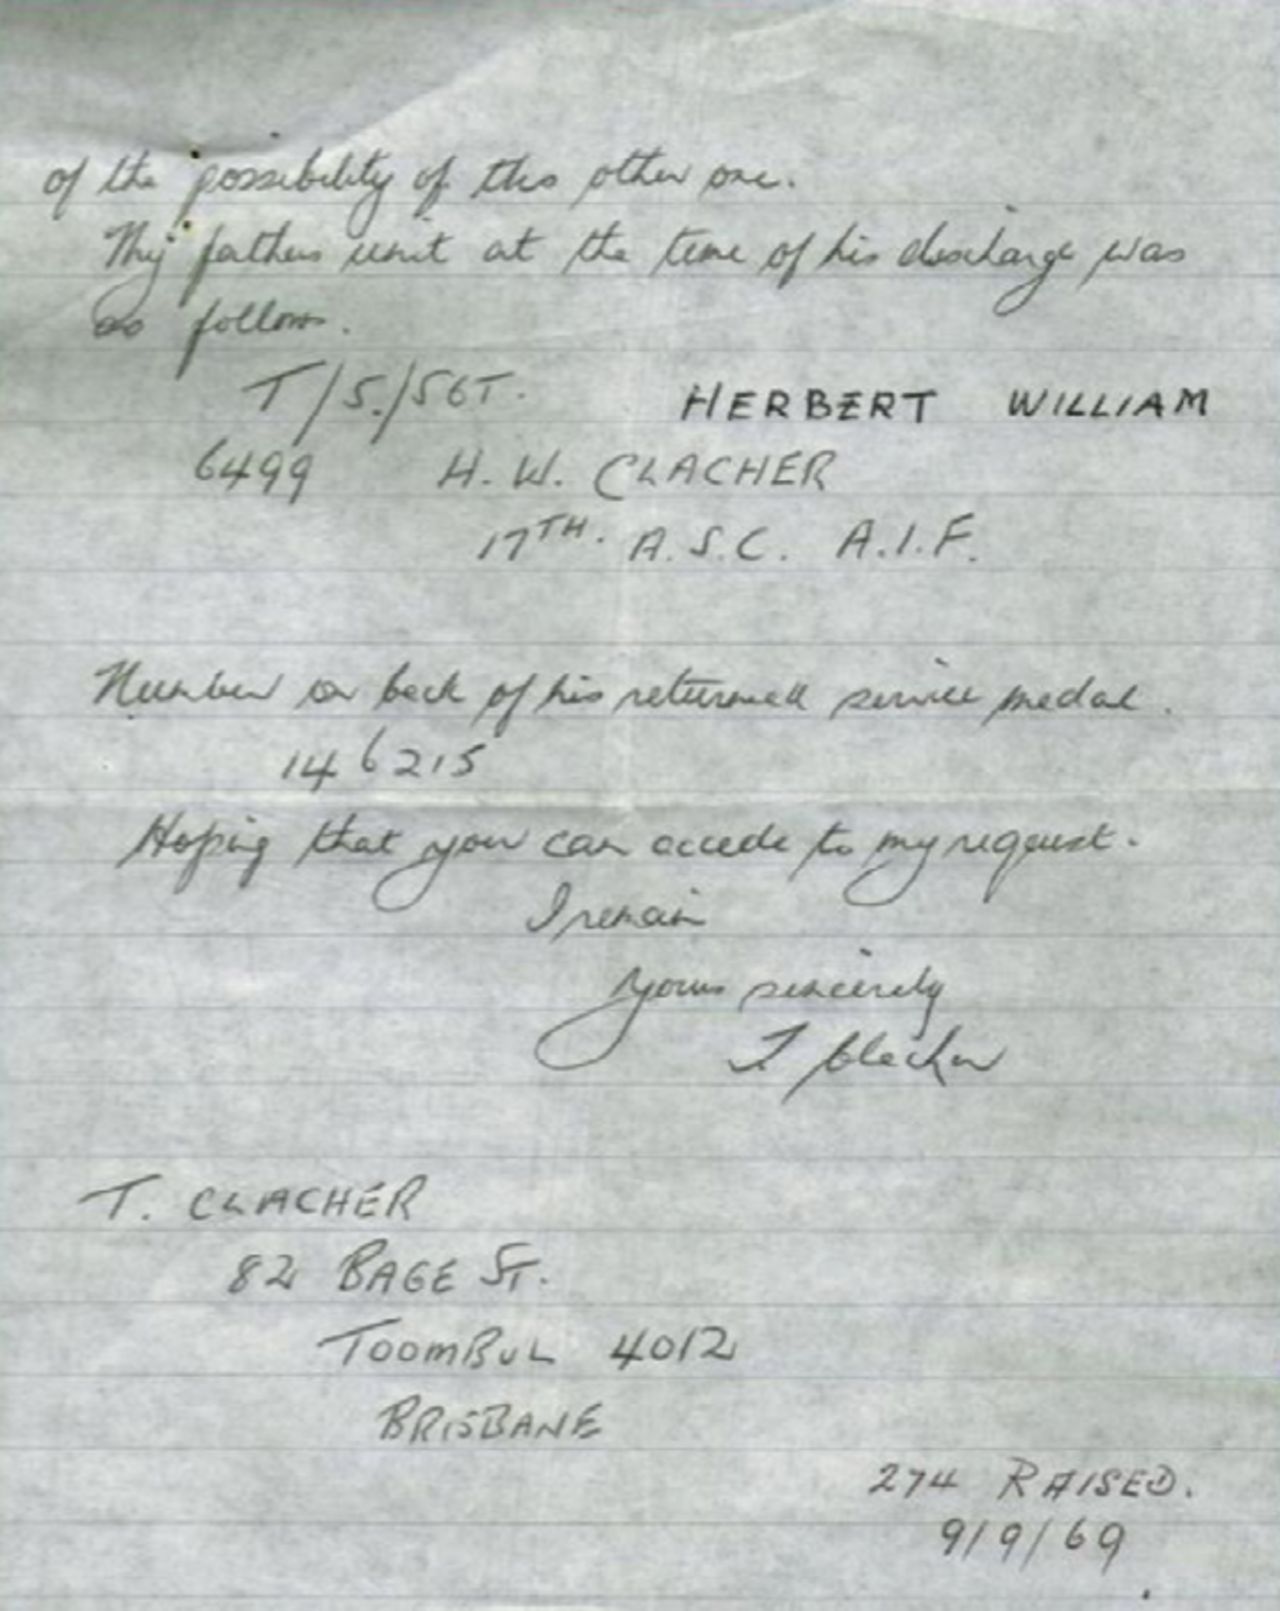 of the possibility of this other one.
My fathers unit at the time of his discharge was
as follows.
T/S./SGT. HERBERT WILLIAM
6499 H. W. CLACHER
17TH. A.S.C. A.I.F.
Number on back of his returned service medal.
146215
Hoping that you can accede to my request.
I remain
Yours sincerely
T Clacher
T. CLACHER
82 BAGE ST.
TOOMBUL 4012
BRISBANE
274 RAISED.
9/9/69